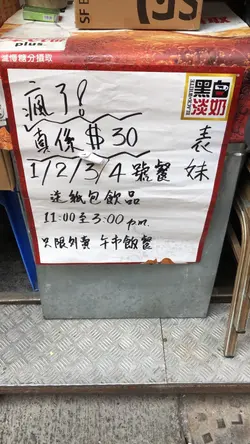 plus.
黑白淡奶
瘋了!
真係$30
表妹
1/2/3/4 號餐
送紙包飲品
11:00至3:00 p.m.
只限外賣 午市飯餐